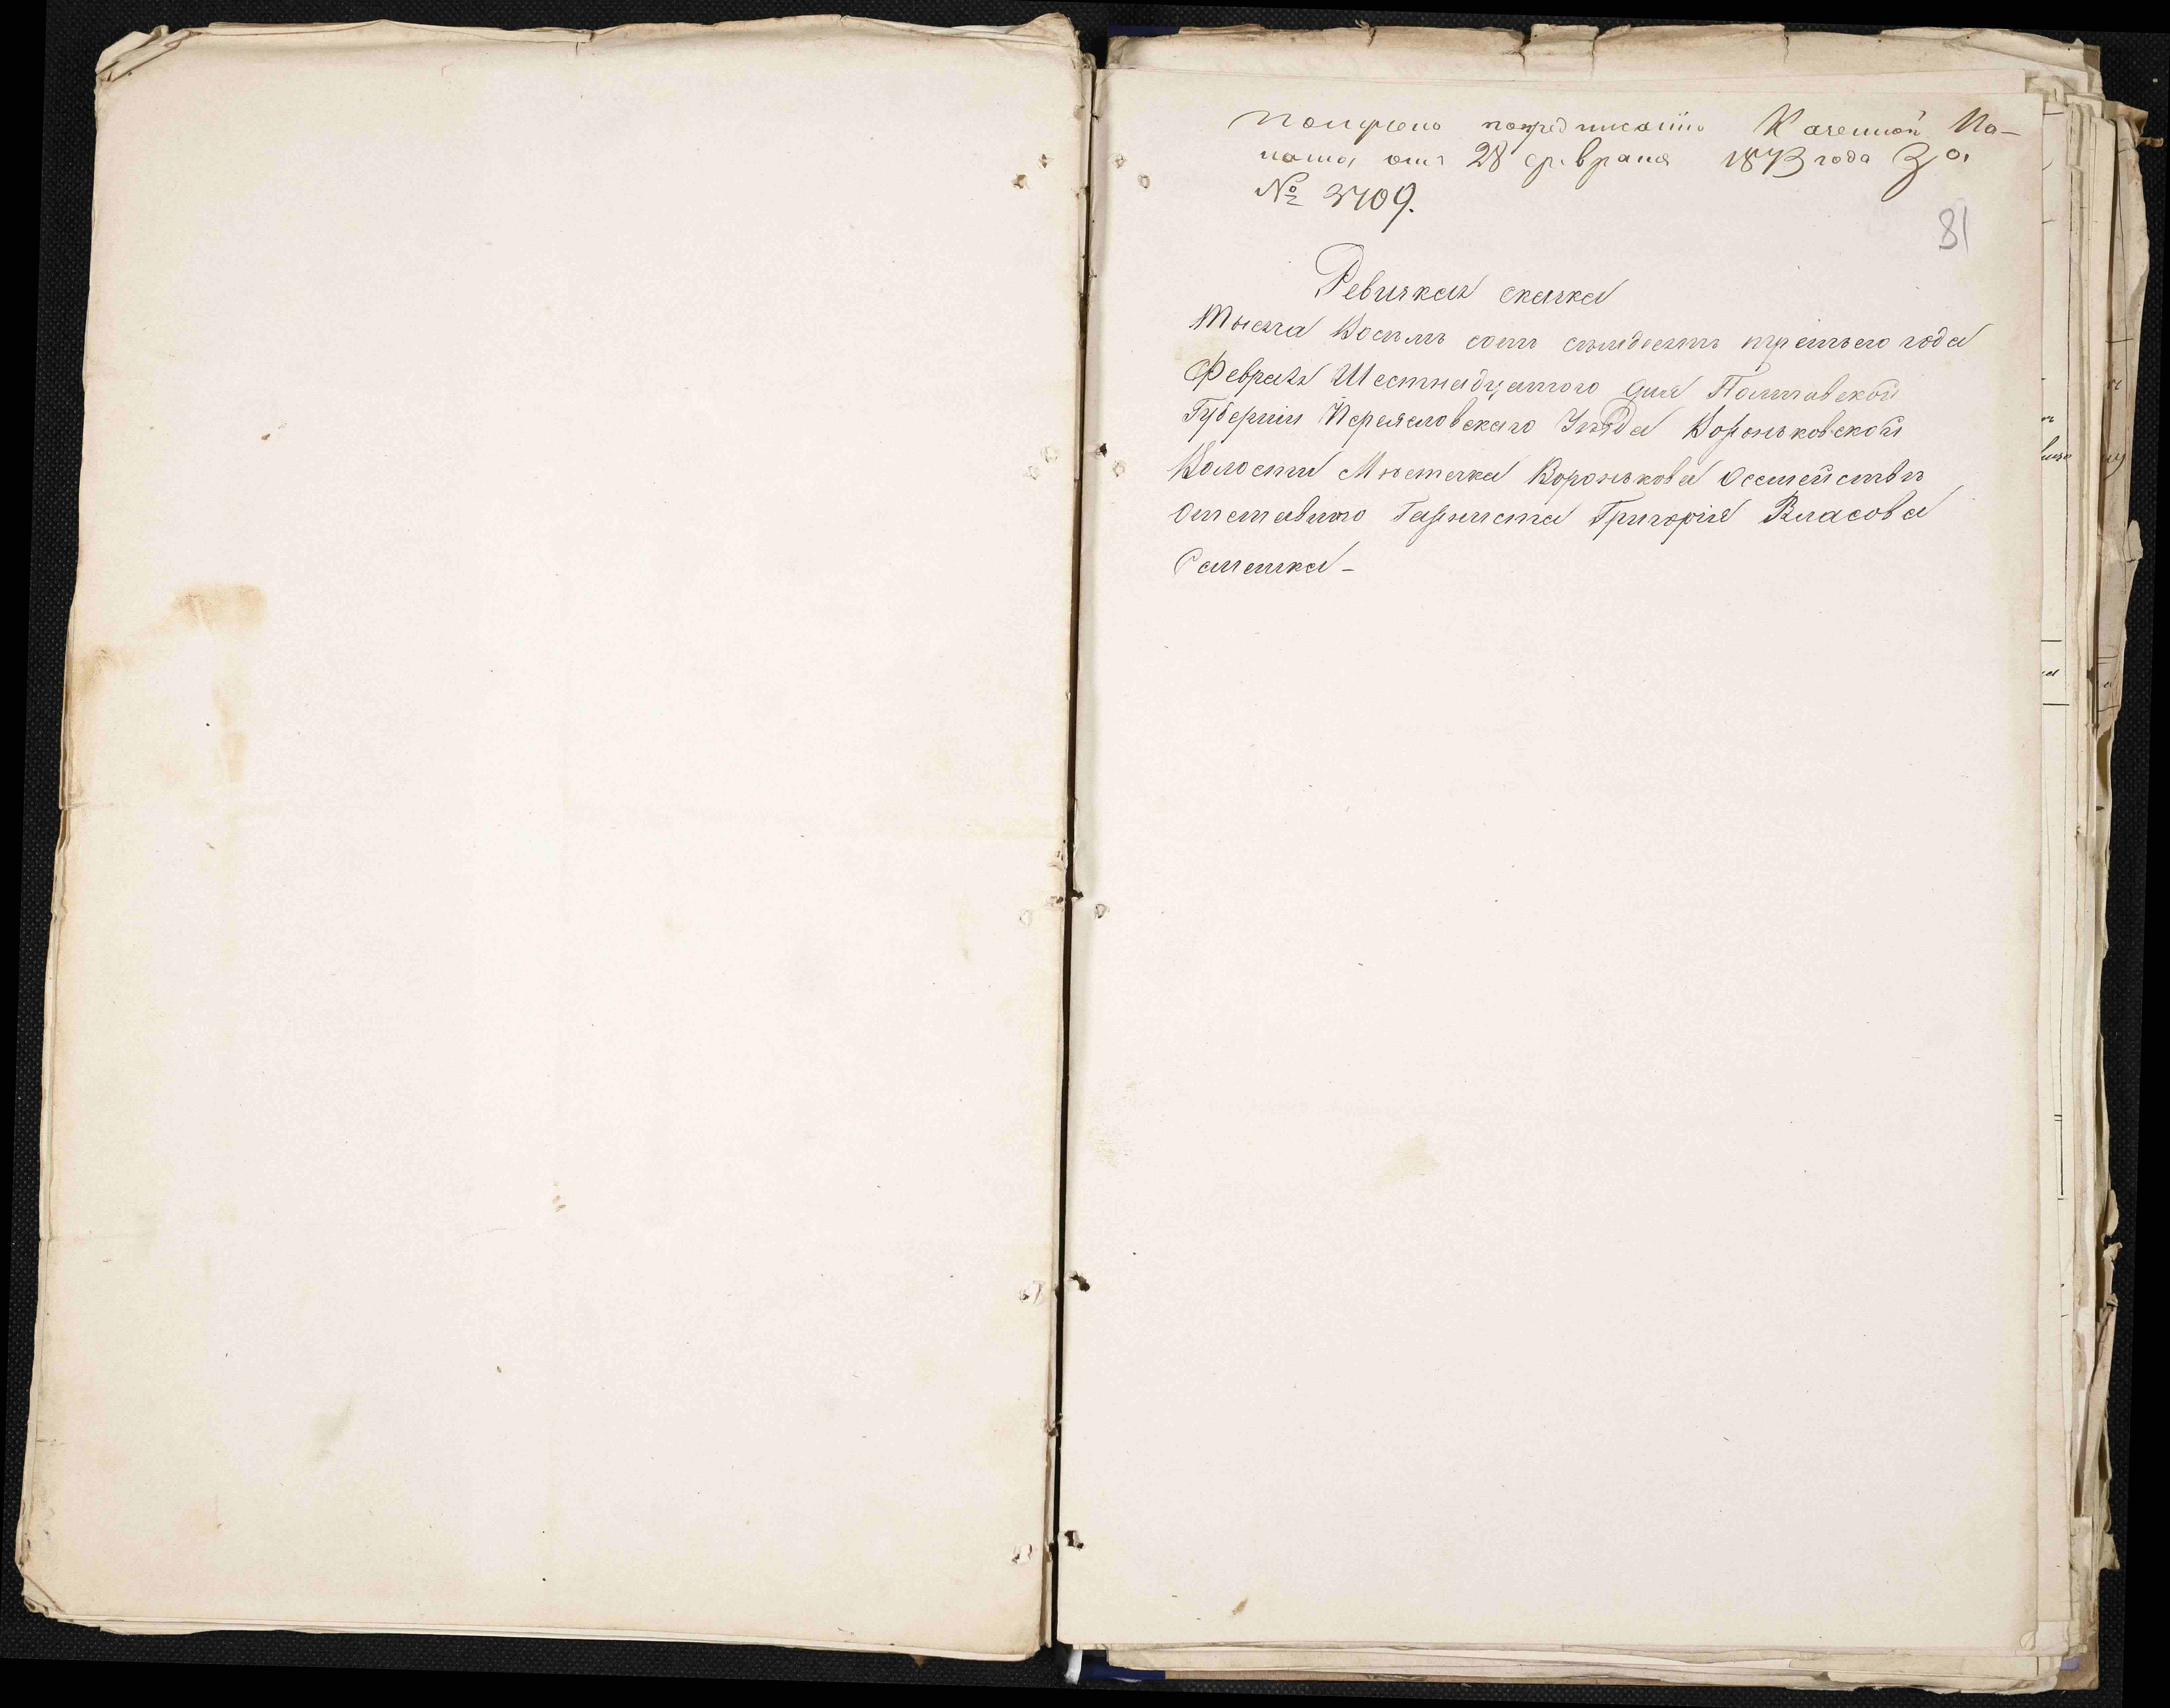 Получено по предписанію Казенной Па-
латы отъ 28 февраля 1873 года За
№ 3709.
81
Ревизкая сказка
Тысеча Восемь сотъ семдесятъ третьего года
Февраля Шестнадцатого дня Полтавской
Губерніи Переяславскаго Уѣзда Вороньковской
Волости Мѣстечка Воронькова О семействѣ
Отставного Гарниста Григорія Власова